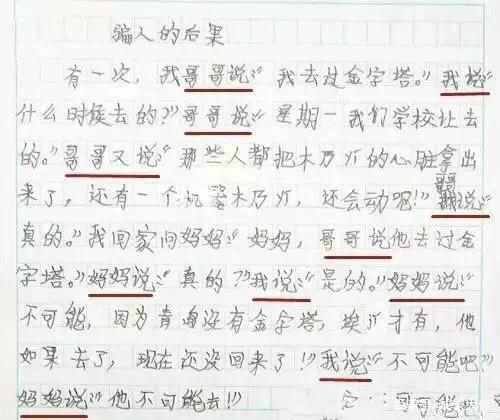 骗人的后果
有一次，我哥哥说：“我去过金字塔。”我说：“
什么时候去的？”哥哥说：“星期一我们学校让去
的。”哥哥又说：“那些人都把木乃灯的心脏拿出
来了，还有一个机器木乃灯，还会动呢！”哥哥说：“
真的。”我回家问妈妈：“妈妈，哥哥说他去过金
字塔。”妈妈说：“真的？”我说：“是的。”妈妈说：“
不可能，因为青岛没有金字塔，埃川才有，他
如果去了，现在还没回来了！”我说：“不可能吧？”
妈妈说：“他不可能去！”